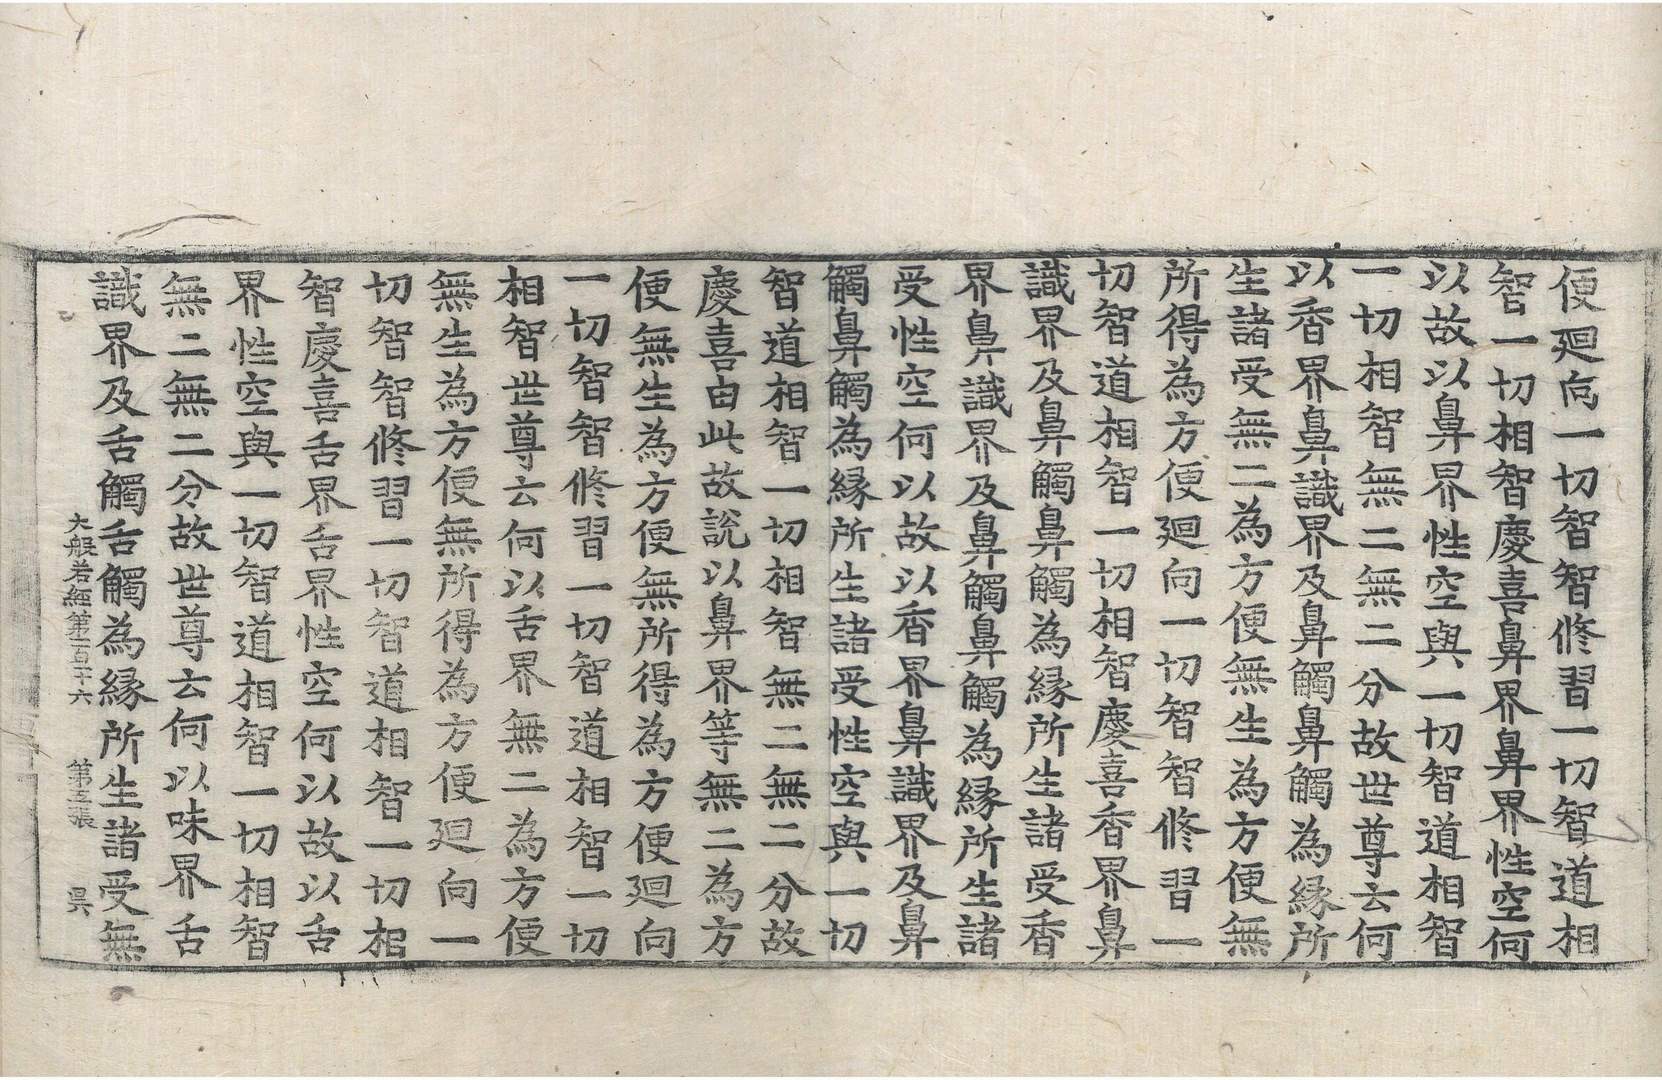 便廻向一切智智修習一切智道相
智一切相智慶喜鼻界鼻界性空何
以故以鼻界性空與一切智道相智
一切相智無二無二分故世尊云何
以香界鼻識界及鼻觸鼻觸為緣所
生諸受無二為方便無生為方便無
所得為方便廻向一切智智修習一
切智道相智一切相智慶喜香界鼻
識界及鼻觸鼻觸為緣所生諸受香
界鼻識界及鼻觸鼻觸為緣所生諸
受性空何以故以香界鼻識界及鼻
觸鼻觸為緣所生諸受性空與一切
智道相智一切相智無二無二分故
慶喜由此故說以鼻界等無二為方
便無生為方便無所得為方便廻向
一切智智修習一切智道相智一切
相智世尊云何以舌界無二為方便
無生為方便無所得為方便廻向一
切智智修習一切智道相智一切相
智慶喜舌界舌界性空何以故以舌
界性空與一切智道相智一切相智
無二無二分故世尊云何以味界舌
識界及舌觸舌觸為緣所生諸受無
大般若經第一百十六 第五張 昃